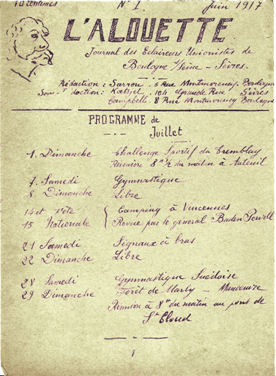 10 centimes N° 1 Juin 1917
L'ALOUETTE
Journal des Eclaireurs Unionistes de
Boulogne s/Seine - Sèvres.
Rédaction: Sarrou, 6 Rue Montmorency, Boulogne
104 Grande Rue Sèvres
Campbell, 8 Rue Montmorency Boulogne
PROGRAMME de
Juillet
1. Dimanche Challenge Sportif du Tremblay
Réunion 8h ½ du matin à Auteuil
7. Samedi Gymnastique
8 Dimanche Libre
14 et Fête Camping à Vincennes
15 Nationale Revue par le général Baden Powell
21 Samedi Signaux à bras
22 Dimanche Libre
28 Samedi Gymnastique Suédoise
29 Dimanche Forêt de Marly - Manoeuvre
Réunion à 8h du matin au pont de
St Cloud
1